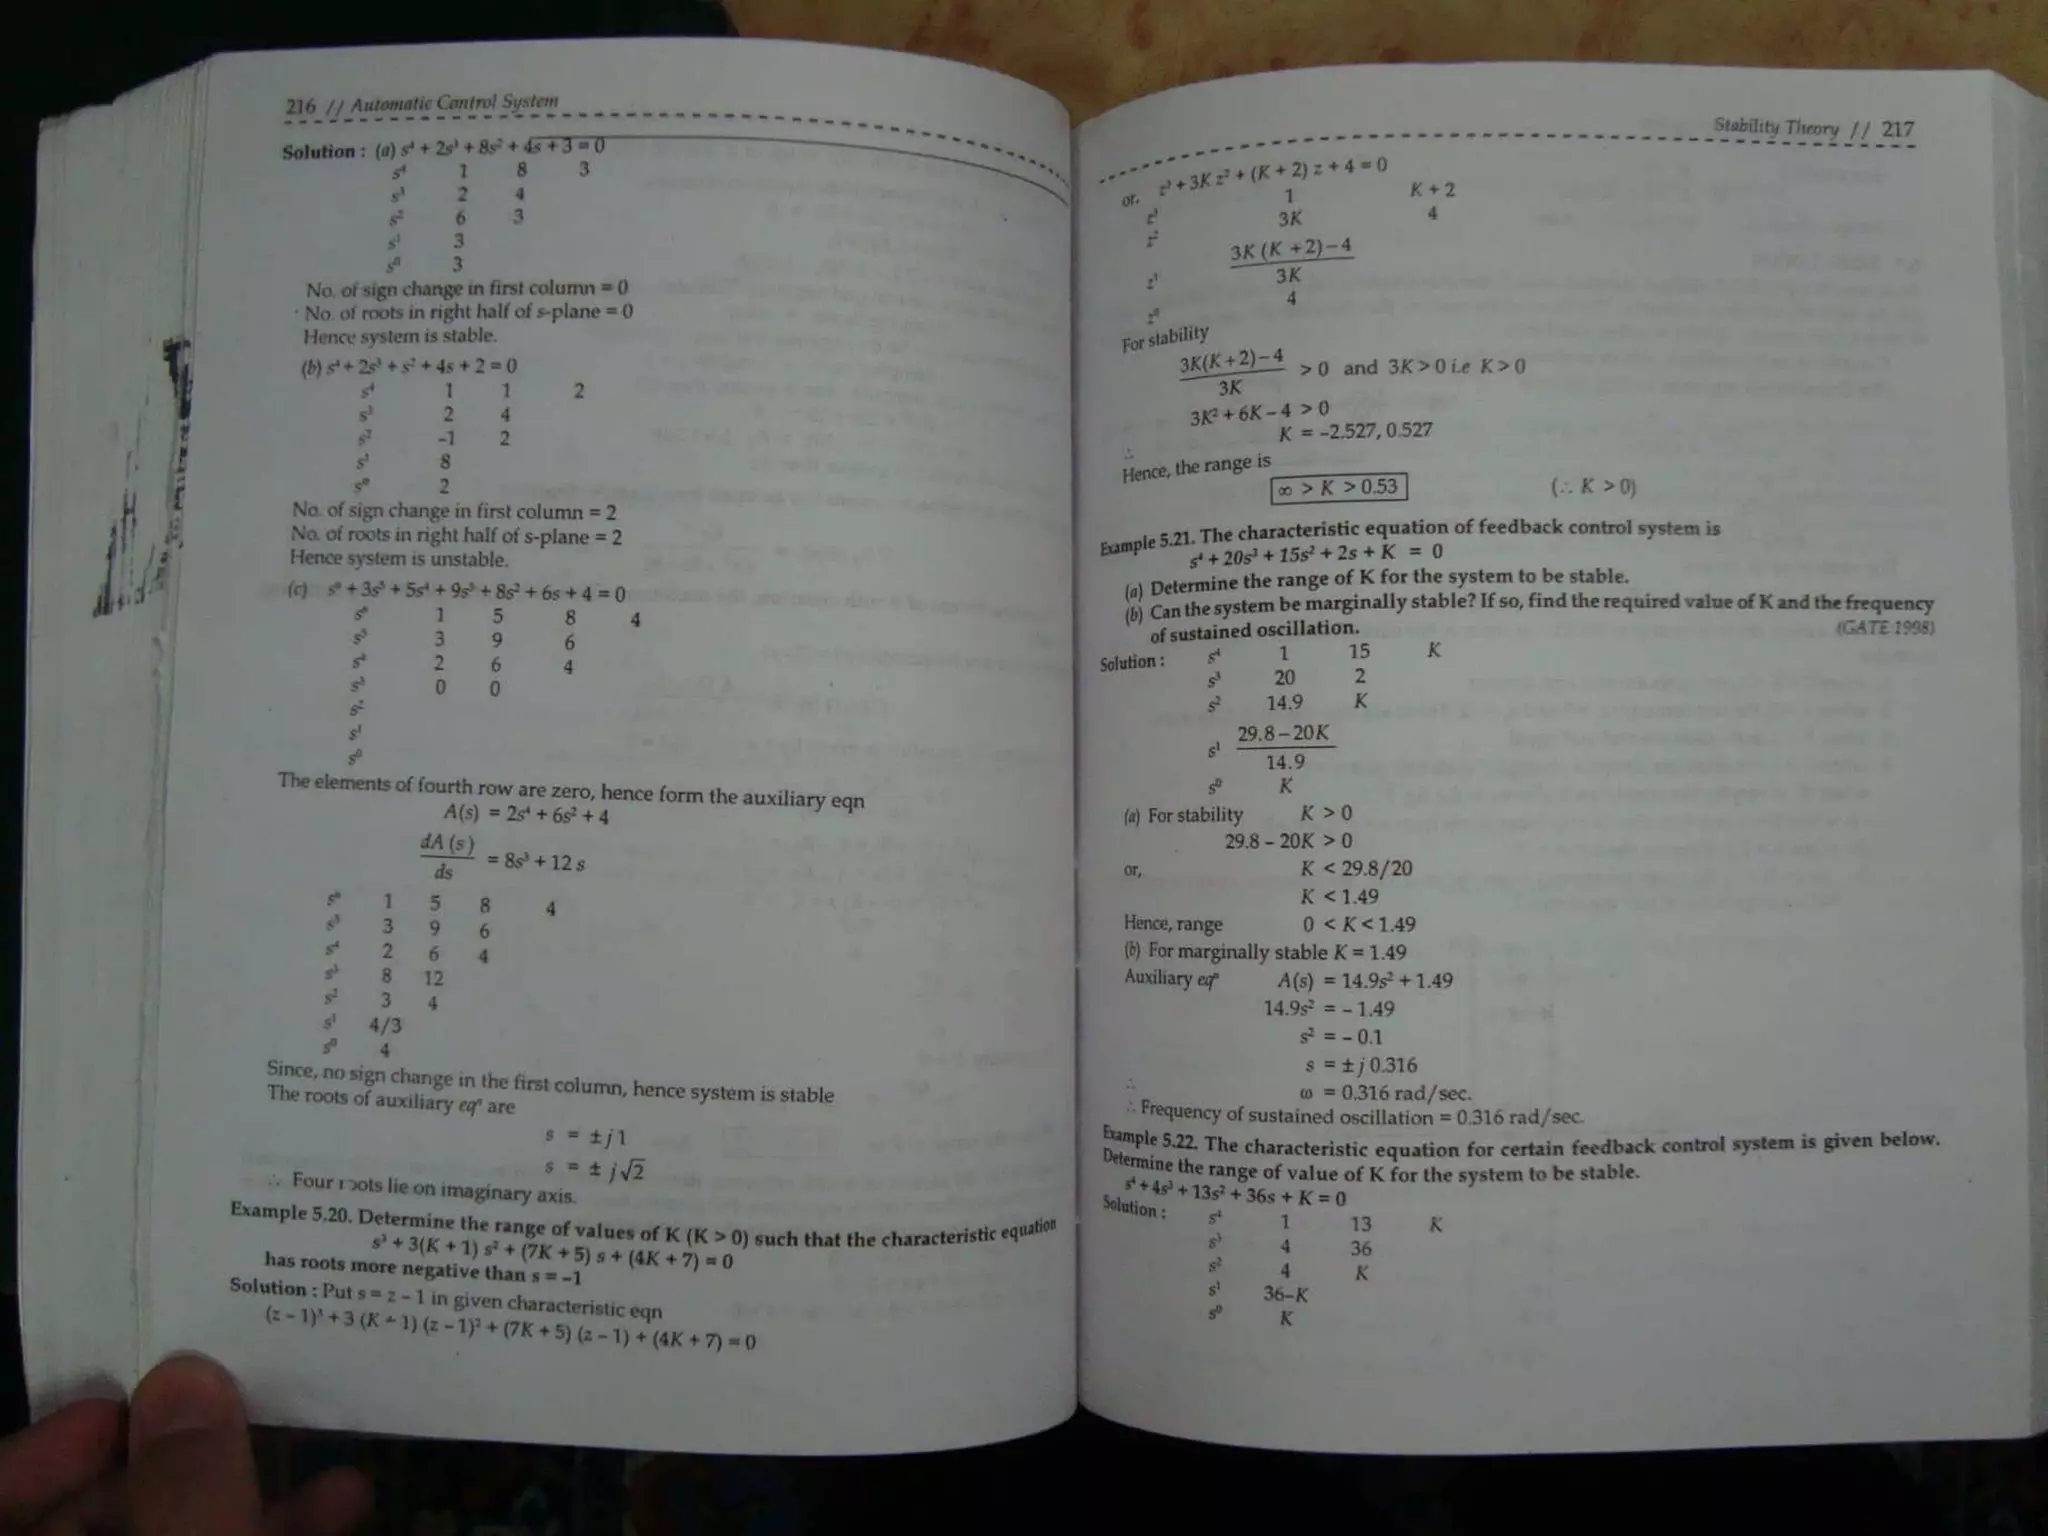 216 // Automatic Control System
Solution : (a) s⁴ + 2s³ + 8s² + 4s + 3 = 0
s⁴ 1 8 3
s³ 2 4
s² 6 3
s¹ 3
s⁰ 3
No. of sign change in first column = 0
No. of roots in right half of s-plane = 0
Hence system is stable.
(b) s⁴ + 2s³ + s² + 4s + 2 = 0
s⁴ 1 1 2
s³ 2 4
s² -1 2
s¹ 8
s⁰ 2
No. of sign change in first column = 2
No. of roots in right half of s-plane = 2
Hence system is unstable.
(c) s⁶ + 3s⁵ + 5s⁴ + 9s³ + 8s² + 6s + 4 = 0
s⁶ 1 5 8 4
s⁵ 3 9 6
s⁴ 2 6 4
s³ 0 0
s²
s¹
s⁰
The elements of fourth row are zero, hence form the auxiliary eqn
A(s) = 2s⁴ + 6s² + 4
dA (s)
ds
= 8s³ + 12 s
s⁶ 1 5 8 4
s⁵ 3 9 6
s⁴ 2 6 4
s³ 8 12
s² 3 4
s¹ 4/3
s⁰ 4
Since, no sign change in the first column, hence system is stable
The roots of auxiliary eqⁿ are
s = ± j 1
s = ± j √2
∴ Four roots lie on imaginary axis.
Example 5.20. Determine the range of values of K (K > 0) such that the characteristic equation
s³ + 3(K + 1) s² + (7K + 5) s + (4K + 7) = 0
has roots more negative than s = -1
Solution : Put s = z - 1 in given characteristic eqn
(z - 1)³ + 3 (K + 1) (z - 1)² + (7K + 5) (z - 1) + (4K + 7) = 0
Stability Theory // 217
or, z³ + 3K z² + (K + 2) z + 4 = 0
z³ 1 K + 2
z² 3K 4
z¹ 3K (K +2) – 4
3K
z⁰ 4
For stability
3K(K+2) – 4
3K
> 0 and 3K > 0 i.e K > 0
3K² + 6K – 4 > 0
∴ K = -2.527, 0.527
Hence, the range is
∞ > K > 0.53 (∴ K > 0)
Example 5.21. The characteristic equation of feedback control system is
s⁴ + 20s³ + 15s² + 2s + K = 0
(a) Determine the range of K for the system to be stable.
(b) Can the system be marginally stable? If so, find the required value of K and the frequency
of sustained oscillation. (GATE 1998)
Solution : s⁴ 1 15 K
s³ 20 2
s² 14.9 K
s¹ 29.8 – 20K
14.9
s⁰ K
(a) For stability K > 0
29.8 – 20K > 0
or, K < 29.8/20
K < 1.49
Hence, range 0 < K < 1.49
(b) For marginally stable K = 1.49
Auxiliary eqⁿ A(s) = 14.9s² + 1.49
14.9s² = – 1.49
s² = – 0.1
s = ± j 0.316
∴ ω = 0.316 rad/sec.
∴ Frequency of sustained oscillation = 0.316 rad/sec.
Example 5.22. The characteristic equation for certain feedback control system is given below.
Determine the range of value of K for the system to be stable.
s⁴ + 4s³ + 13s² + 36s + K = 0
Solution : s⁴ 1 13 K
s³ 4 36
s² 4 K
s¹ 36–K
s⁰ K